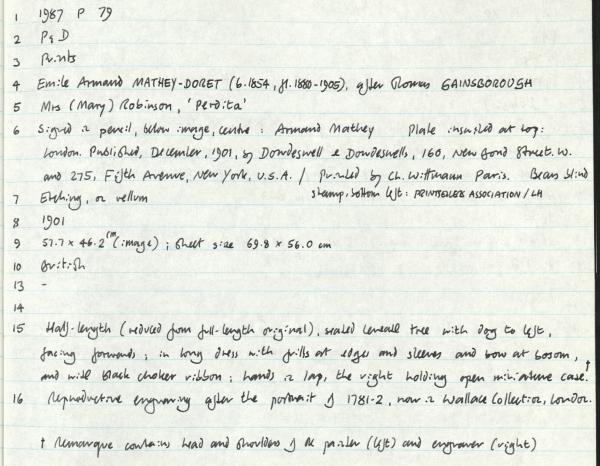 1 1987 P 79
2 P & D
3 Prints
4 Emile Armand MATHEY-DORET (b.1854, fl. 1880-1905), after Thomas GAINSBOROUGH
5 Mrs (Mary) Robinson, 'Perdita'
6 Signed in pencil, below image, centre : Armand Mathey Plate inscribed at top:
London. Published, December, 1901, by Dowdeswell & Dowdeswells, 160, New Bond Street. W.
and 275, Fifth Avenue, New York, U.S.A. / Printed by Ch. Wittmann Paris. Bears blind
stamp, bottom left: PRINTSELLERS ASSOCIATION / LH
7 Etching, on vellum
8 1901
9 57.7 x 46.2 cm (image) ; sheet size 69.8 x 56.0 cm
10 British
13 -
14
15 Half-length (reduced from full-length original), seated beneath tree with dog to left,
facing forwards ; in long dress with frills at edges and sleeves and bow at bosom,
and with black choker ribbon ; hands in lap, the right holding open miniature case.†
16 Reproductive engraving after the portrait of 1781-2, now in Wallace Collection, London.
† Remarque contains head and shoulders of the painter (left) and engraver (right)